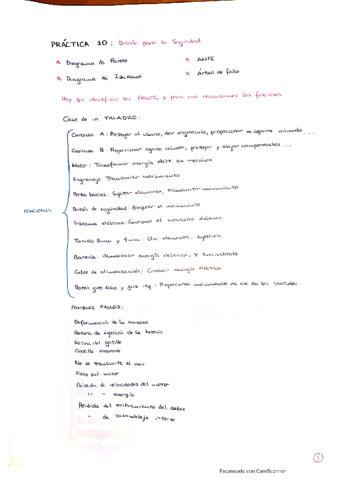 PRÁCTICA 10: Diseño para la Seguridad
* Diagrama de Pareto
* AMFE
* Diagrama de Ishikawa
* Árbol de fallo
Hay que identificar los FALLOS y para eso necesitamos las funciones
Caso de un TALADRO:
Carcasa A: Proteger al usuario, dar ergonomía, proporcionar un agarre cómodo ...
Carcasa B: Proporcionar agarre cómodo, proteger y alojar componentes ...
Motor: Transformar energía eléct. en mecánica
Engranaje: Transmitir movimiento
Porta brocas: Sujetar elemento, transmitir movimiento
FUNCIONES
Botón de seguridad: Bloquear el movimiento
Sistema eléctrico: Gestionar el suministro eléctrico
Tornillo 8mm y 9mm: Unir elementos. Sujeción
Batería: Almacenar energía eléctrica, y suministrarla
Cable de alimentación: Conducir energía eléctrica
Botón giro dcho y giro izq: Proporcionar movimiento en uno de los sentidos
POSIBLES FALLOS:
Deformación de la carcasa
Rotura de sujeción de la batería
Rotura del gatillo
Gatillo
No se transmite el mov.
Fallo del motor
Pérdida de velocidades del motor
" " energía
Pérdida del del cable
de interno
1
Escaneado con CamScanner